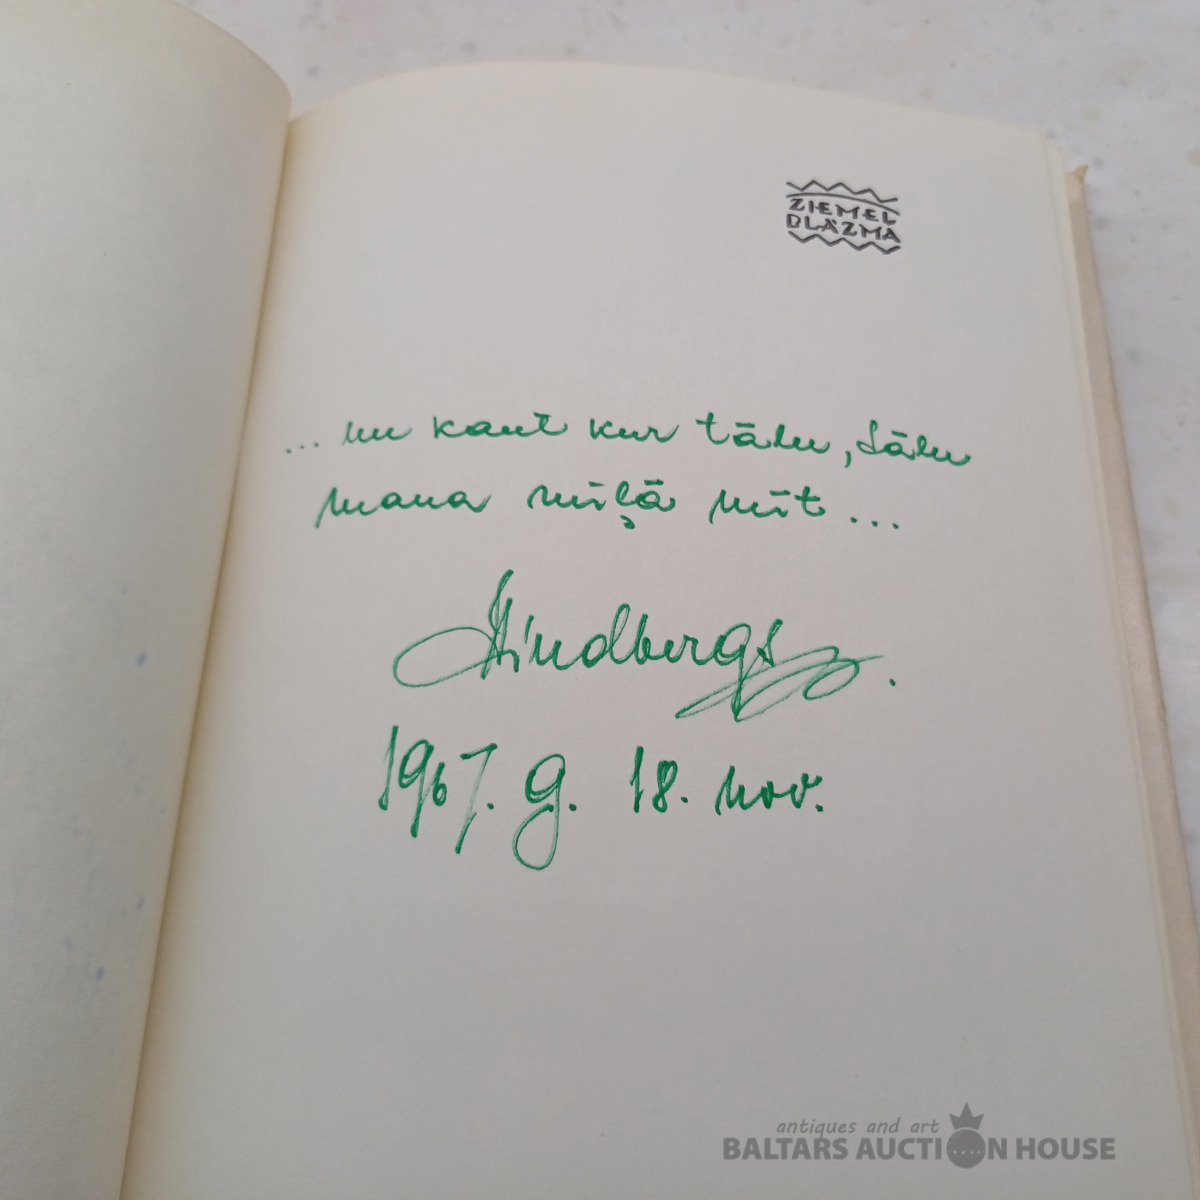 ZIEMEL
BLĀZMA
... nu kaut kur tālu, tālu
mana mīļā mīt ...
Lindbergs.
1967. g. 18. nov.
antiques and art
BALTARS AUCTION HOUSE